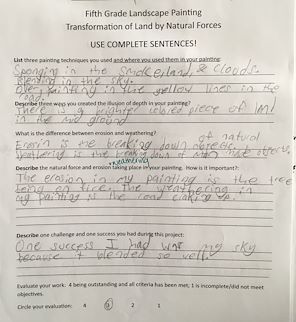 Fifth Grade Landscape Painting
Transformation of Land by Natural Forces
USE COMPLETE SENTENCES!
List three painting techniques you used and where you used them in your painting:
Sponging in the smoke, land, & clouds.
Blending in the sky.
Over painting in the yellow lines in the
road.
Describe three ways you created the illusion of depth in your painting?
There is a brighter colored piece of land
in the mid ground
What is the difference between erosion and weathering?
of natural
Erosin is the breaking down objects.
Wethering is the breaking down of man made objects.
weathering
Describe the natural force and erosion taking place in your painting. How is it important?:
The erosion in my painting is the tree
being on fire. The weathering in
my painting is the road craking up.
Describe one challenge and one success you had during this project:
One success I had was my sky
because it blended so well.
Evaluate your work: 4 being outstanding and all criteria has been met; 1 is incomplete/did not meet
objectives.
Circle your evaluation: 4 3 2 1